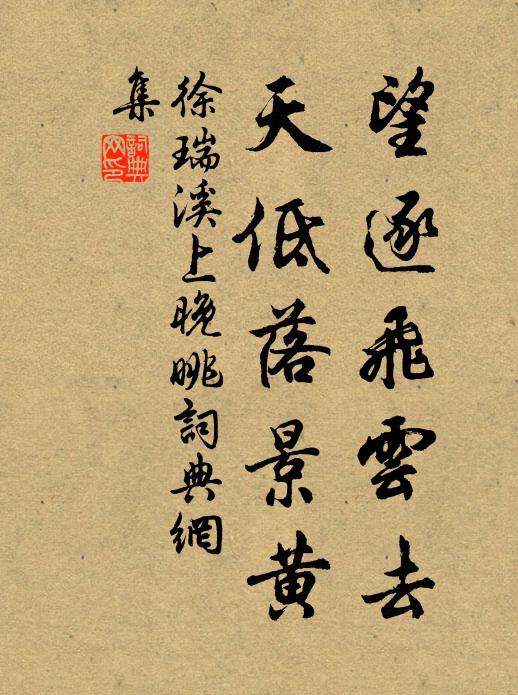 望逐飛雲去
天低落景黃
徐瑞溪上晚眺詞典網
集
詞典
网印